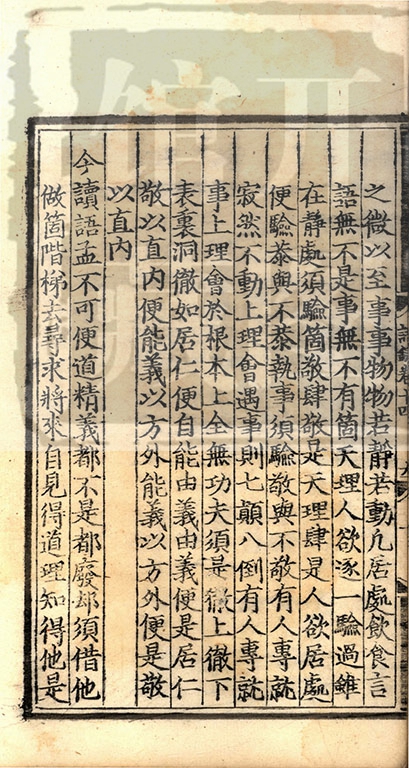 之微以至事事物物若靜若動凡居處飲食言
語無不是事無不有箇天理人欲逐一驗過雖
在靜處須驗箇敬肆敬是天理肆是人欲居處
便驗恭與不恭執事須驗敬與不敬有人專就
寂然不動上理會遇事則七顛八倒有人專就
事上理會於根本上全無功夫須是徹上徹下
表裏洞徹如居仁便自能由義由義便是居仁
敬以直內便能義以方外能義以方外便是敬
以直內
今讀語孟不可便道精義都不是都廢却須借他
做箇階梯去尋求將來自見得道理知得他是